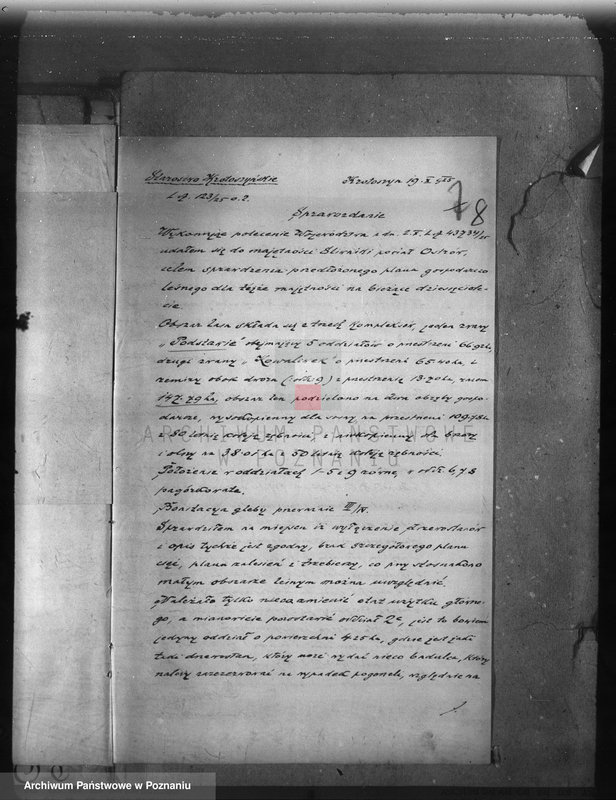 Starostwo Krotoszyńskie Krotoszyn 19.X.1925
L. dz. 123/25 o. l.
7 8
Sprawozdanie
Wykonując polecenie Województwa z dn. 2.X. L. dz. 43734/25
udałem się do majętności powiat Ostrów,
celem sprawdzenia przedłożonego planu gospodarczo
leśnego dla tejże majętności na bieżące dziesięciole-
cie.
Obszar lasu składa się z trzech kompleksów, jeden zwany
"Podstawie" obejmujący 5 oddziałów o przestrzeni 66 ha,
drugi zwany "Kowalinek" o przestrzeni 65 ha, i
obok dworu (odz. 9) z przestrzenią ha, razem
147.79 ha, obszar ten podzielono na dwa obręby gospo-
darcze, wysokopienny dla sosny na przestrzeni 109.78 ha
z 80 letnią koleją rębności, i niskopienny dla brzozy
i olszy na 38.01 ha z 50 letnią koleją rębności.
Położenie w oddziałach 1-5 i 9 równe, w oddz. 6, 7, 8
pagórkowate.
Bonitacja gleby przeważnie III/IV.
Sprawdziłem na miejscu iż wyłączenie drzewostanów
i opis tychże jest zgodny, brak szczegółowego planu
cięć, planu zalesień i trzebieży, co przy stosunkowo
małym obszarze leśnym można uwzględnić.
Należało tylko nieco zmienić etat użytku główne-
go, a mianowicie pozostawić oddział 2c, jest to bowiem
jedyny oddział o powierzchni 4.25 ha, gdzie jest jeszcze
drzewostan, który może wydać nieco budulca, który
należy zarezerwować na wypadek pogorzeli, względnie na
ARCHIWUM PAŃSTWOWE
W POZNANIU
Archiwum Państwowe w Poznaniu